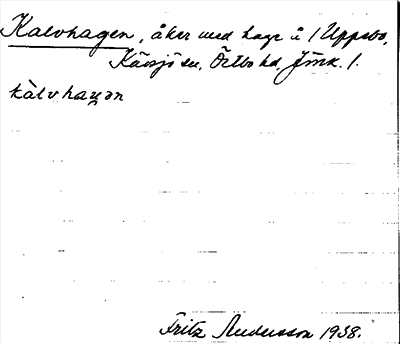 Kalvhagen, åker med hage å 1 Uppebo,
Källsjö sn, Östbo hd, Jmk. 1.
kàlvhaɡən
Fritz Andersson 1938.